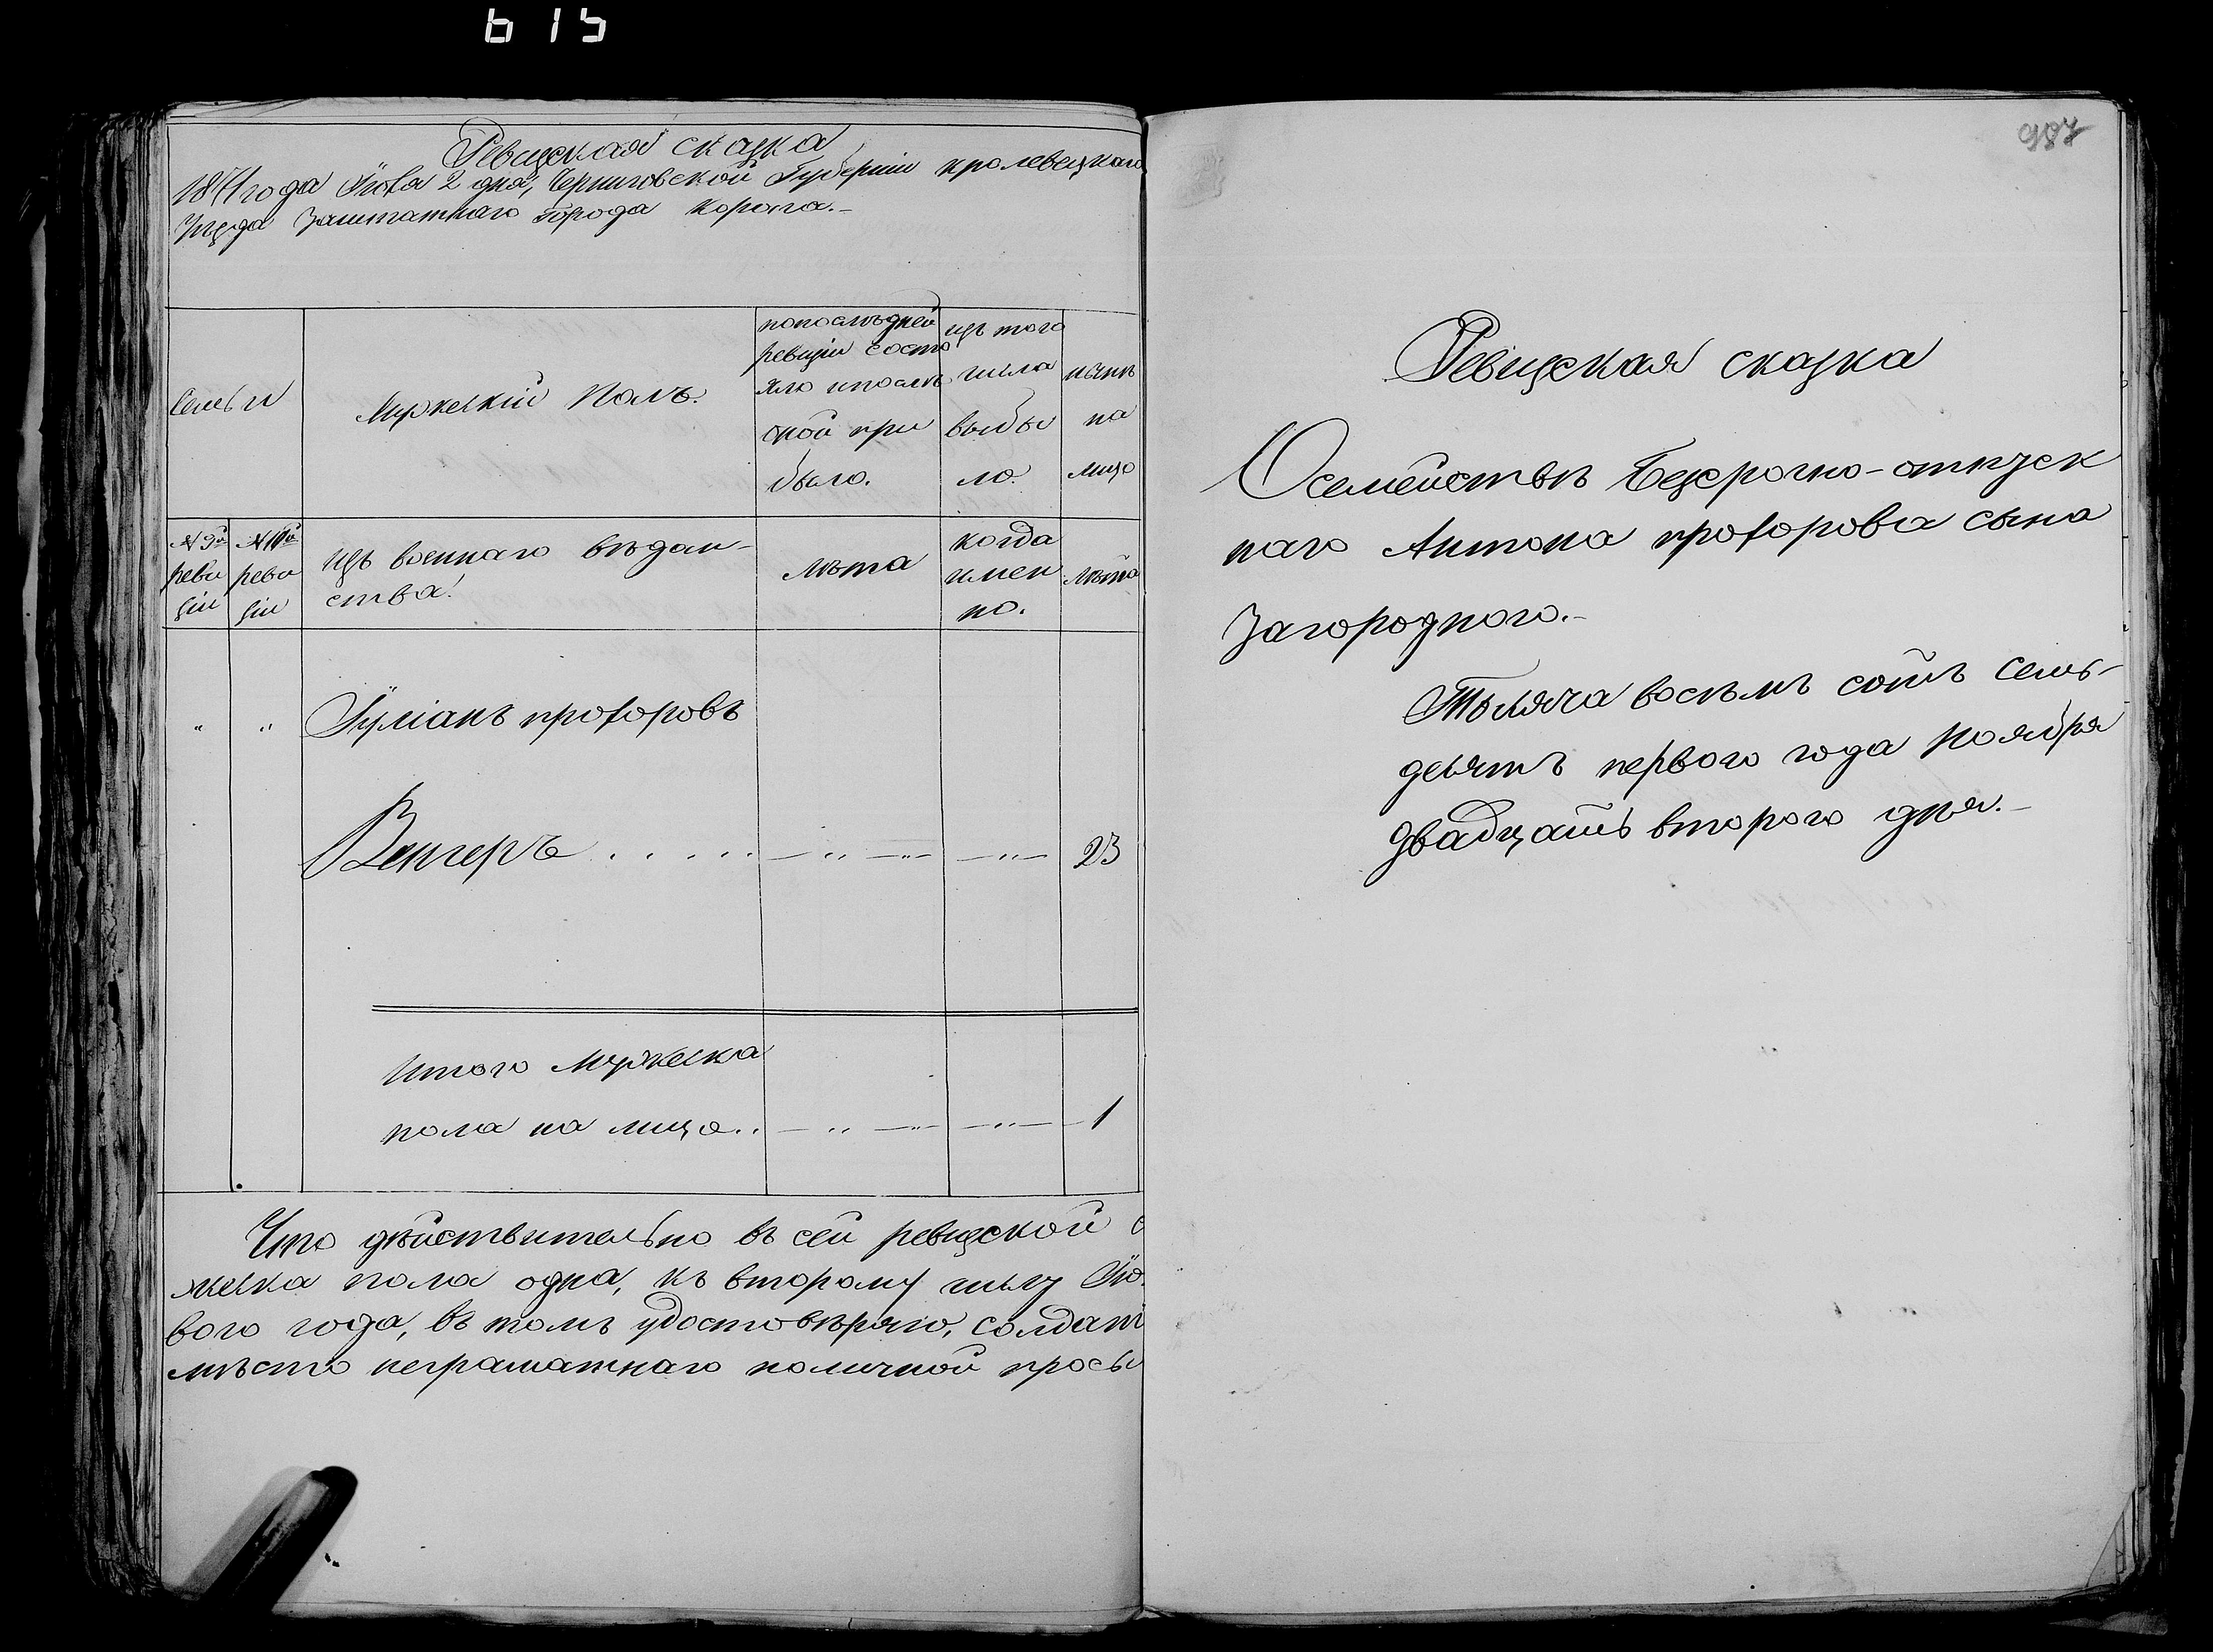 615
Ревизская сказка
1871 года Iюля 2 дня, Черниговской Губернiи кролевецкаго
Уѣзда Заштатнаго Города Коропа.-
Семьи
Мужескiй Полъ.
попослѣдней
ревизiи состо
яло ипослѣ
оной при
было.
изъ того
числа
выбы
ло.
нынѣ
на
лицо
№ 9й
реви
зiи
№ 10й
реви
зiи
изъ военнаго вѣдом-
ства!
лѣта
когда
имен
но.
лѣта
" " Iулiанъ прохоровъ
Венгеръ . . . . . — " — " — — " — 23
Итого Мужеска
пола на лицо.. — " — " — — " — 1
Что дѣйствительно въ сей ревизской с
жеска пола одна, къ второму числу Iю.
вого года, въ томъ удостовѣряю, солдат
мѣсто неграматнаго поличной прось
987
Ревизская сказка
Осемействѣ Безсрочно-отпуск
наго Антона прохорова сына
Загородного.-
Тысяча восемъ сотъ семь-
десятъ первого года Ноября
двадцать второго дня.-